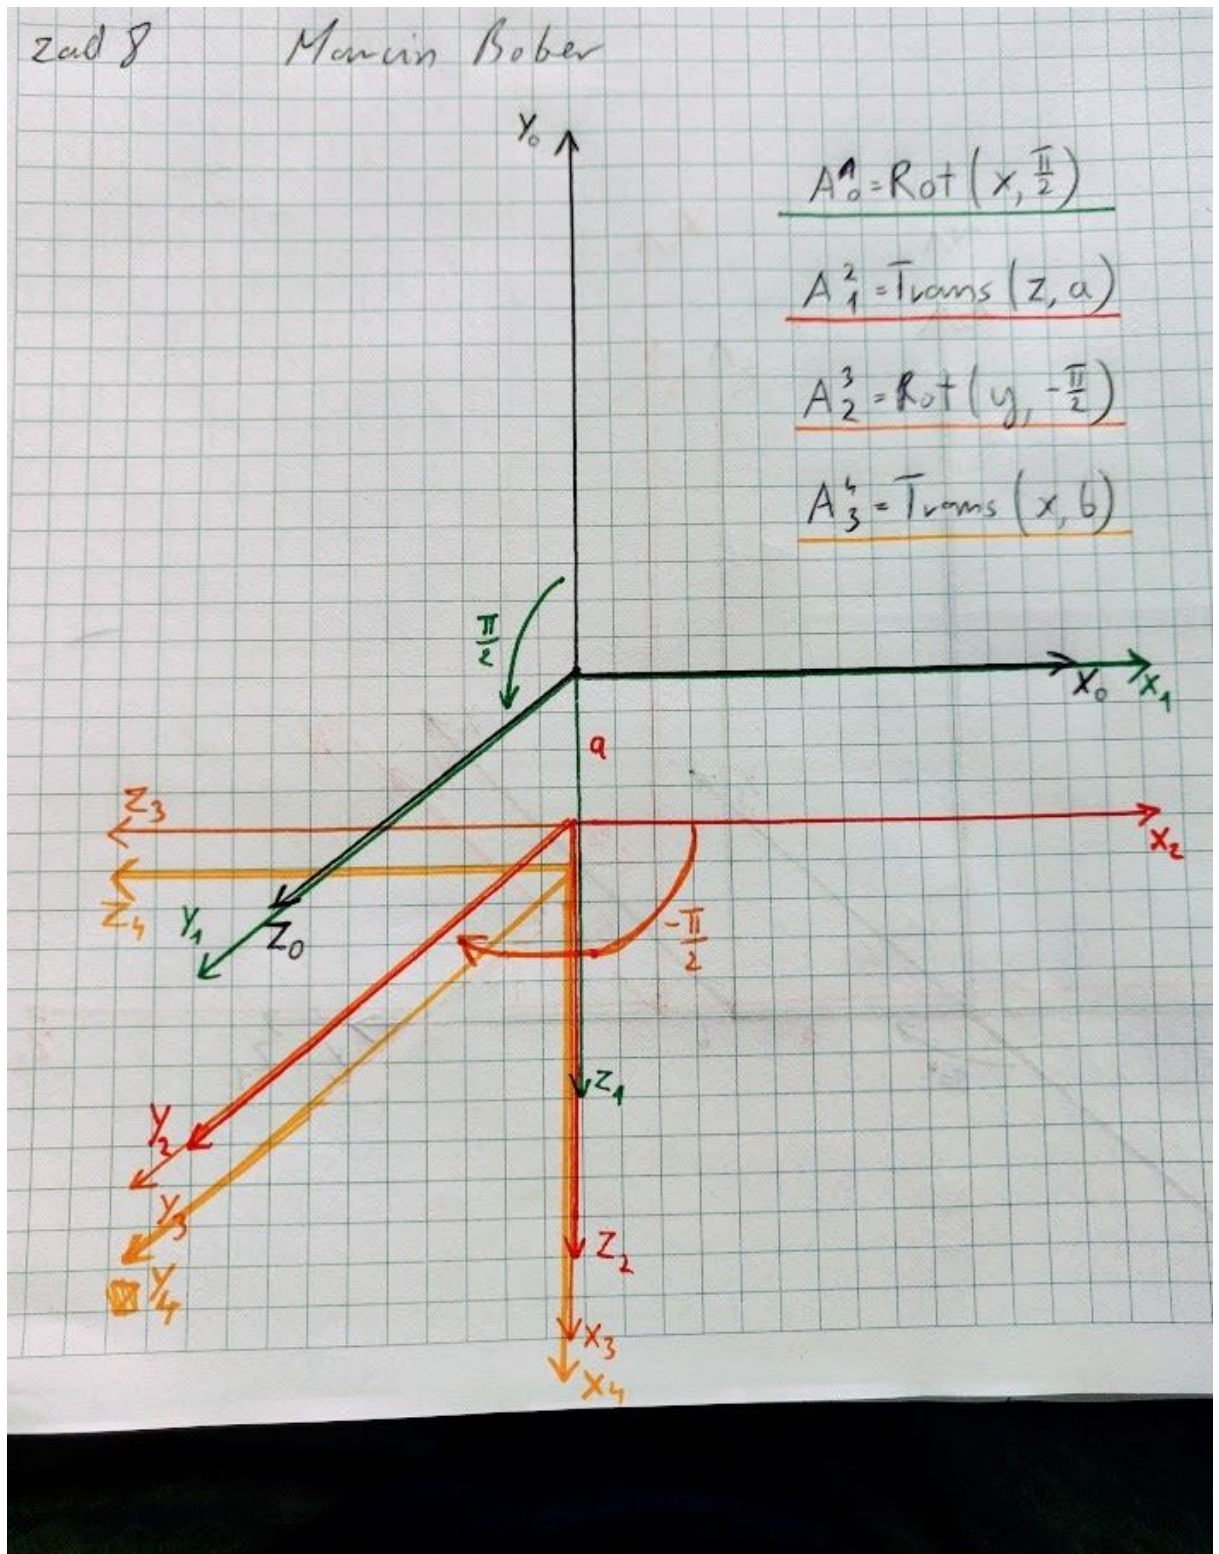 zad 8 Marcin Bober
Y₀
A¹₀ = Rot(x, π/2)
A²₁ = Trans(z, a)
A³₂ = Rot(y, -π/2)
A⁴₃ = Trans(x, b)
π/2
X₀ X₁
a
Z₃
X₂
Z₄
Y₁
Z₀
-π/2
Z₁
Y₂
Y₃
Z₂
Y₄
X₃
X₄